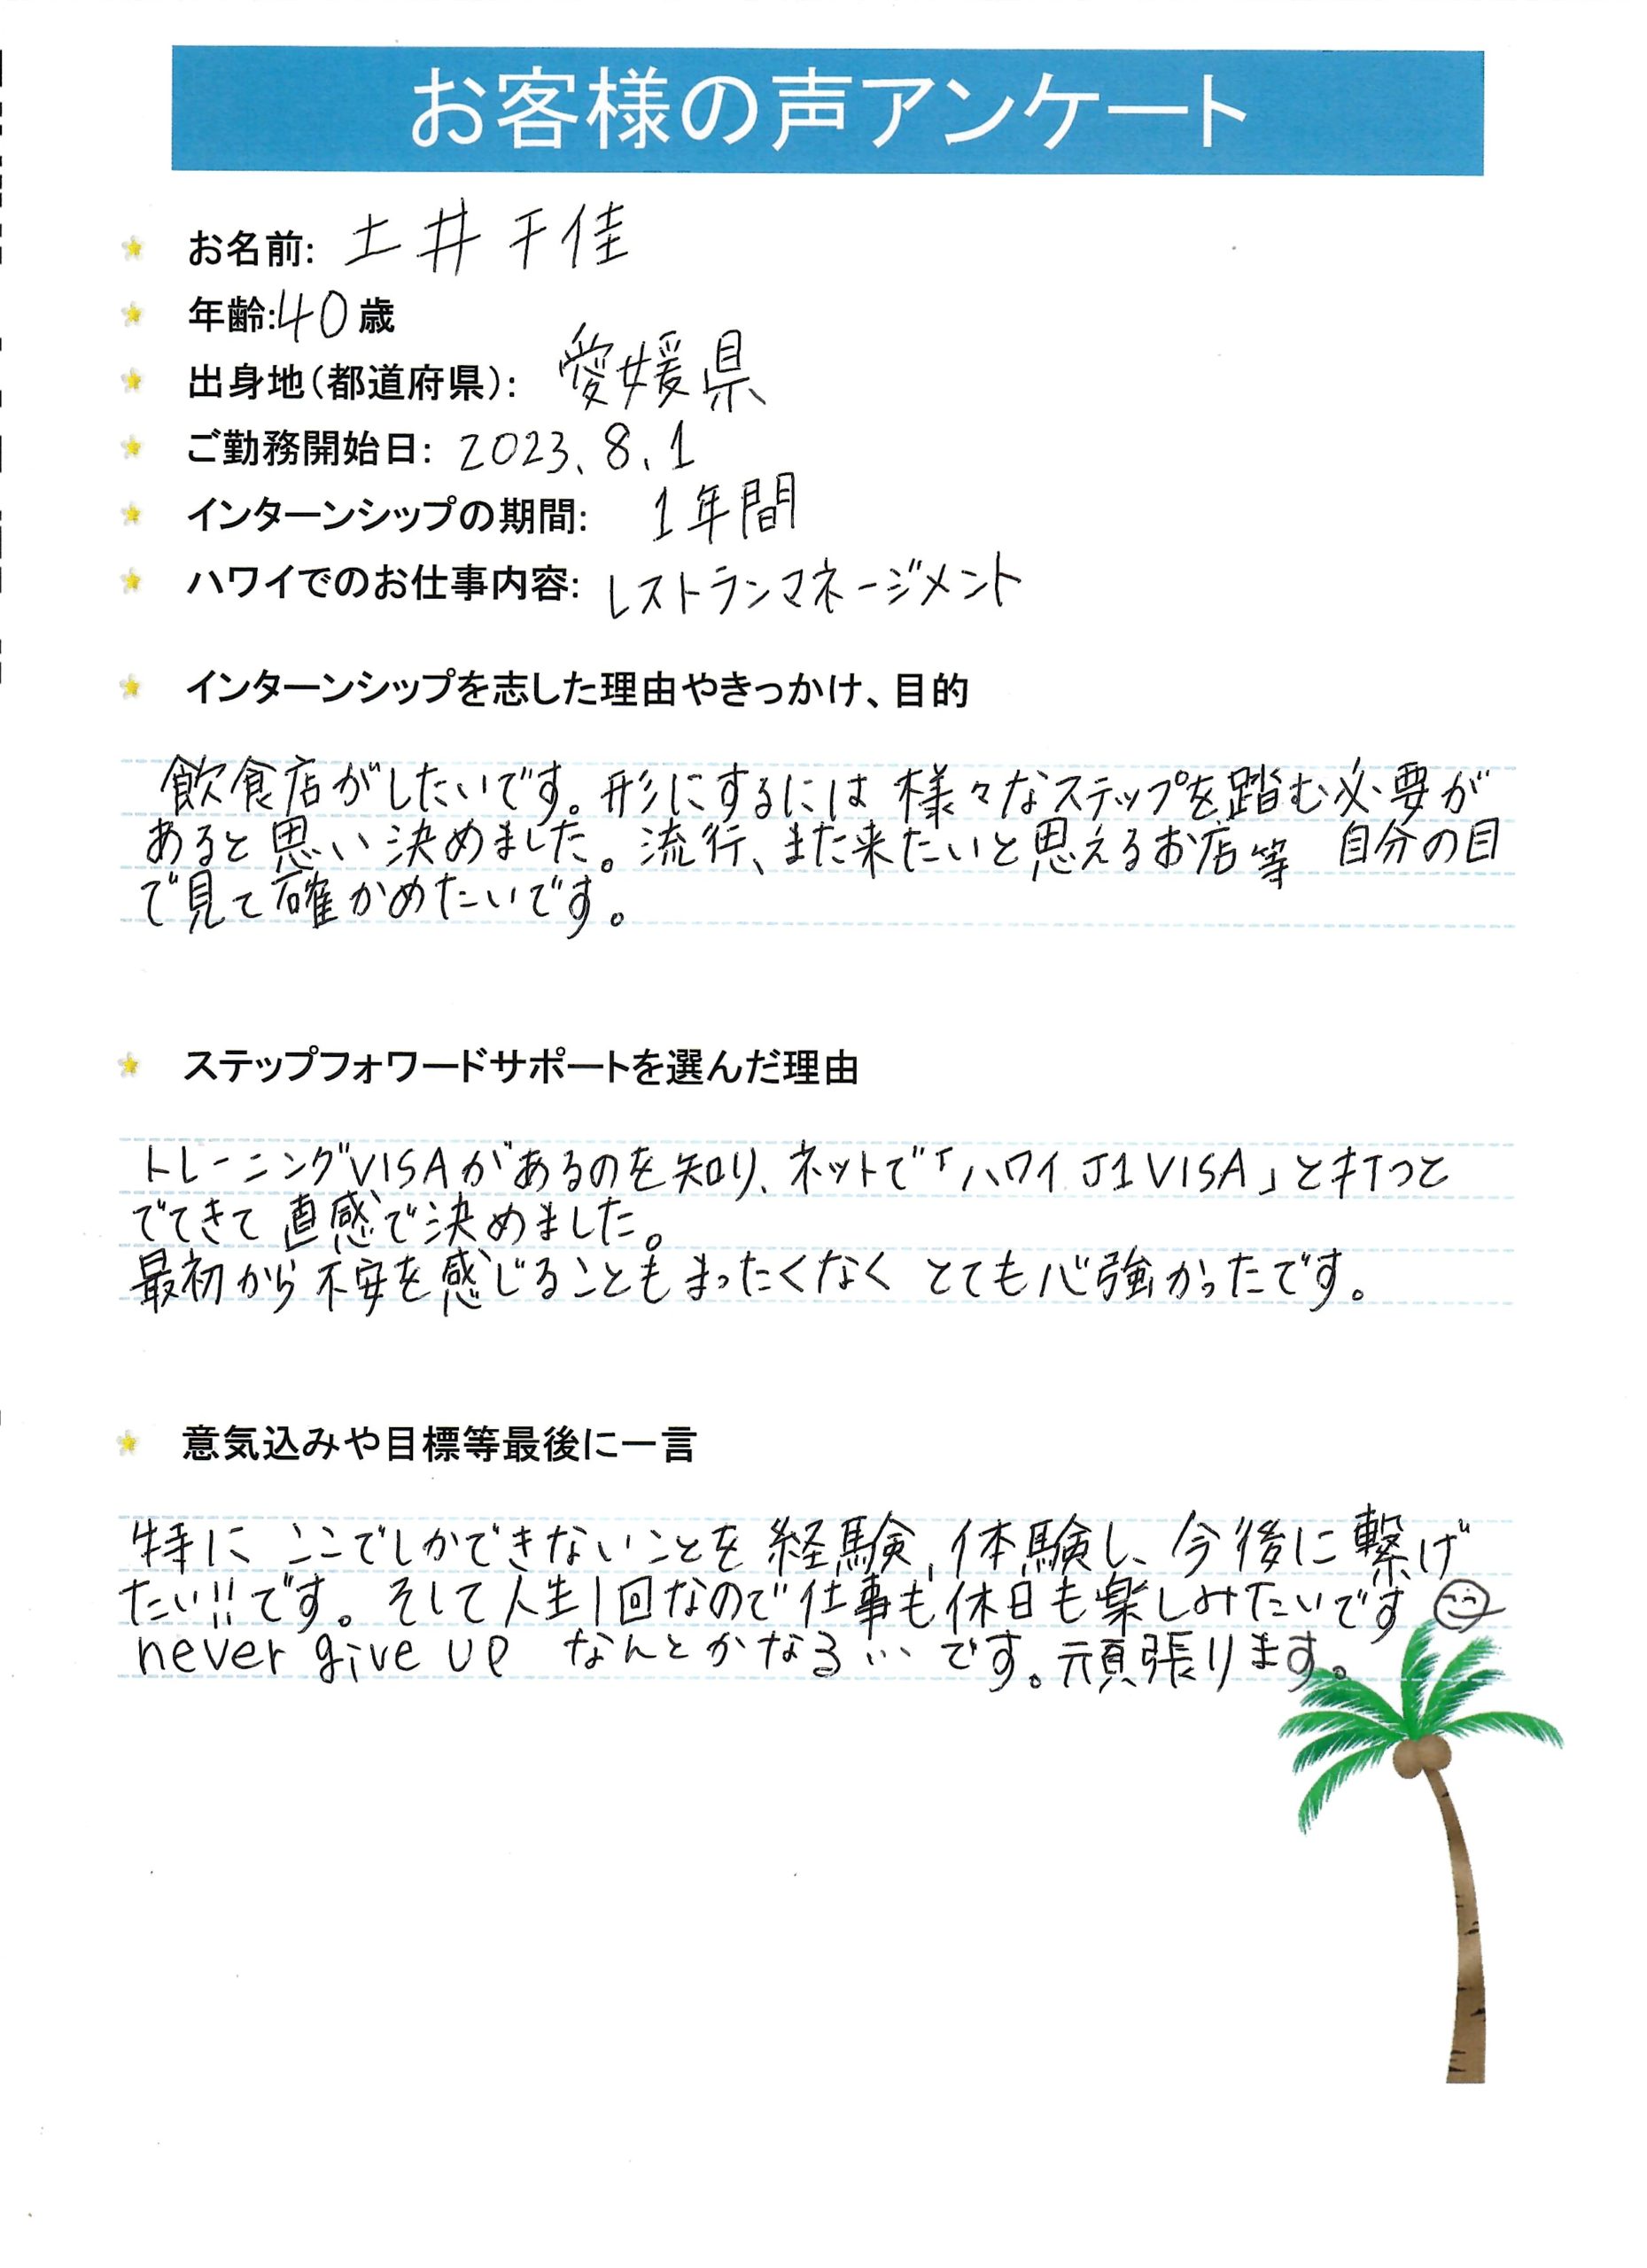 お客様の声アンケート
お名前: 土井千佳
年齢:40歳
出身地(都道府県): 愛媛県
ご勤務開始日: 2023.8.1
インターンシップの期間: 1年間
ハワイでのお仕事内容: レストランマネージメント
インターンシップを志した理由やきっかけ、目的
飲食店がしたいです。形にするには 様々なステップを踏む必要が
あると思い決めました。流行、また来たいと思えるお店等 自分の目
で見て確かめたいです。
ステップフォワードサポートを選んだ理由
トレーニングVISAがあるのを知り、ネットで「ハワイ J1 VISA」と打つと
でてきて直感で決めました。
最初から不安を感じることもまったくなく とても心強かったです。
意気込みや目標等最後に一言
特に ここでしかできないことを経験、体験し、今後に繋げ
たい!!です。そして人生1回なので仕事も休日も楽しみたいです
never give up なんとかなる…です。頑張ります。